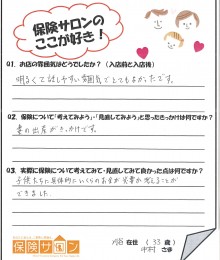 保険サロンの
ここが好き!
01. お店の雰囲気はどうでしたか? (入店前と入店後)
明るくて話しやすい雰囲気でとてもよかったです。
02. 保険について「考えてみよう」・「見直してみよう」と思ったきっかけは何ですか?
妻の出産がきっかけです。
03. 実際に保険について考えてみて・見直してみて良かった点は何ですか?
子供たちに具体的にいくらのお金が必要か考えることが
できました。
保険サロン
在住 (33歳)
中村 さま